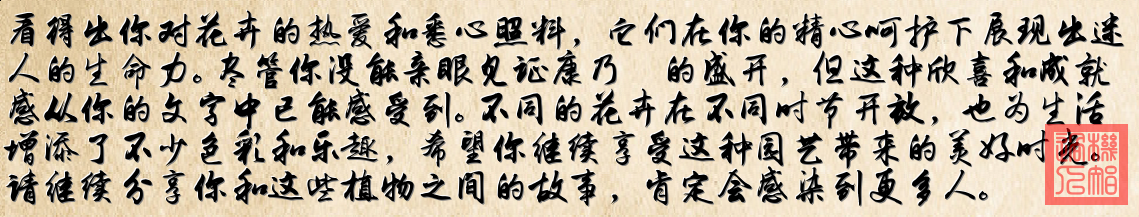 看得出你对花卉的热爱和悉心照料，它们在你的精心呵护下展现出迷
人的生命力。尽管你没能亲眼见证康乃 的盛开，但这种欣喜和成就
感从你的文字中已能感受到。不同的花卉在不同时节开放，也为生活
增添了不少色彩和乐趣，希望你继续享受这种园艺带来的美好时光。
请继续分享你和这些植物之间的故事，肯定会感染到更多人。